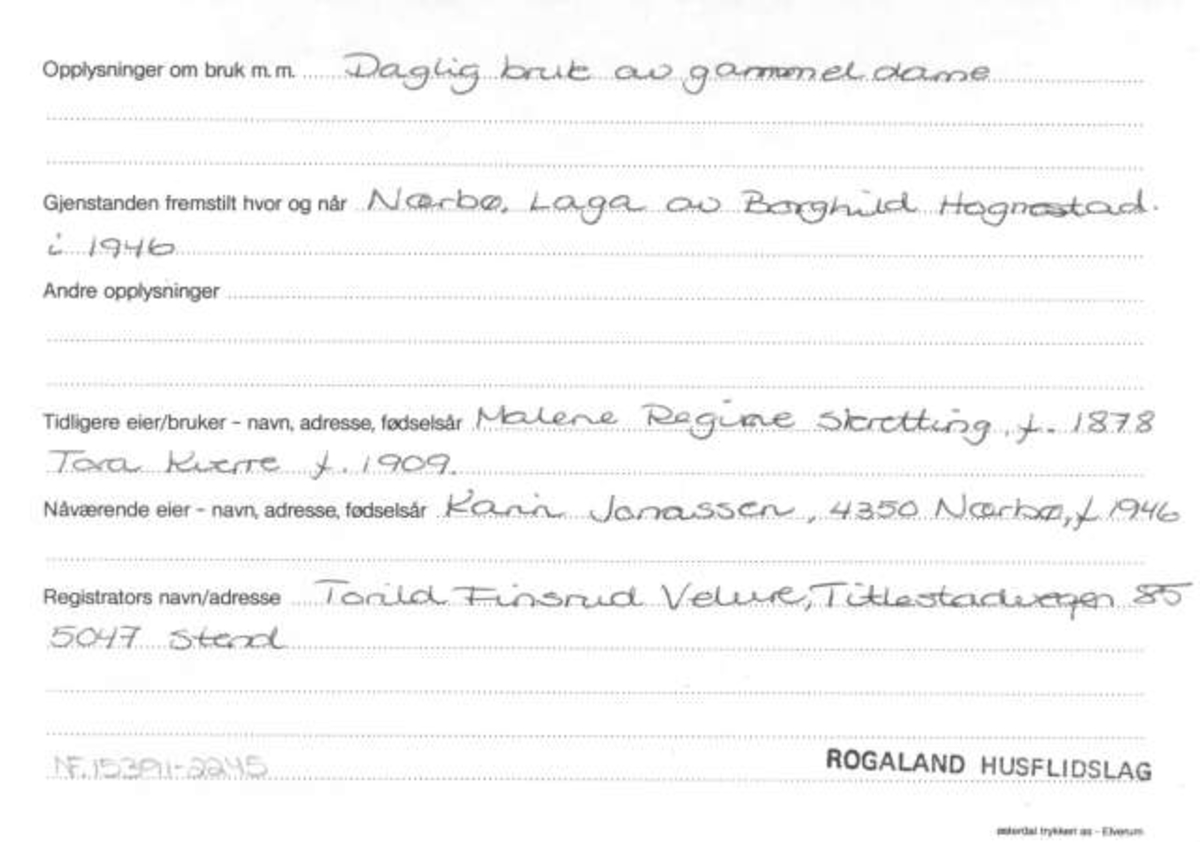 Opplysninger om bruk m.m. Daglig bruk av gammel dame
Gjenstanden fremstilt hvor og når Nærbø. Laga av Borghild Hognestad.
i 1946
Andre opplysninger
Tidligere eier/bruker – navn, adresse, fødselsår Malene Regine Skretting, f. 1878
Tora Kverre f. 1909.
Nåværende eier – navn, adresse, fødselsår Karin Jonassen, 4350 Nærbø, f 1946
Registrators navn/adresse Torild Finsrud Velure, Titlestadvegen 85
5047 Stend
NF.15391-2245
ROGALAND HUSFLIDSLAG
østerdal trykkeri as - Elverum